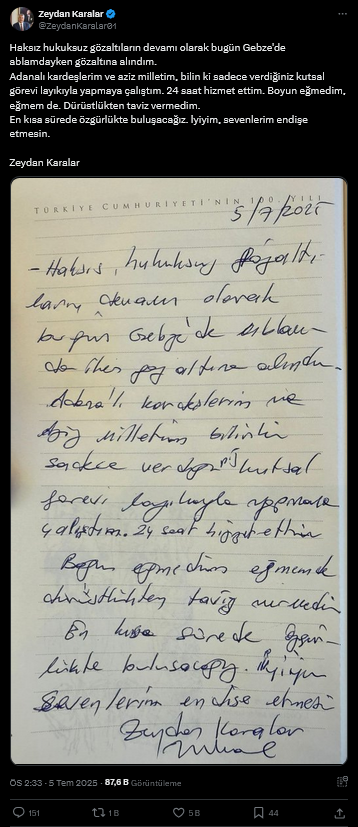 Zeydan Karalar
@ZeydanKaralar01
Haksız hukuksuz gözaltıların devamı olarak bugün Gebze'de
ablamdayken gözaltına alındım.
Adanalı kardeşlerim ve aziz milletim, bilin ki sadece verdiğiniz kutsal
görevi layıkıyla yapmaya çalıştım. 24 saat hizmet ettim. Boyun eğmedim,
eğmem de. Dürüstlükten taviz vermedim.
En kısa sürede özgürlükte buluşacağız. İyiyim, sevenlerim endişe
etmesin.
Zeydan Karalar
TÜRKİYE CUMHURİYETİ'NİN 100. YILI
5/7/2025
- Haksız, hukuksuz gözaltı-
ların devamı olarak
bugün Gebze'de ablam-
da iken göz altına alındım.
Adana'lı kardeşlerim ve
Aziz milletim bilinki
sadece verdiğiniz kutsal
görevi layıkıyla yapmaya
çalıştım. 24 saat hizmet ettim
Boyun eğmedim eğmemde
dürüstlükten taviz vermedim
En kısa sürede özgür-
lükte buluşacağız. İyiyim
Sevenlerim endişe etmesin
Zeydan Karalar
ÖS 2:33 · 5 Tem 2025 · 87,6 B Görüntüleme
151 1 B 5 B 44